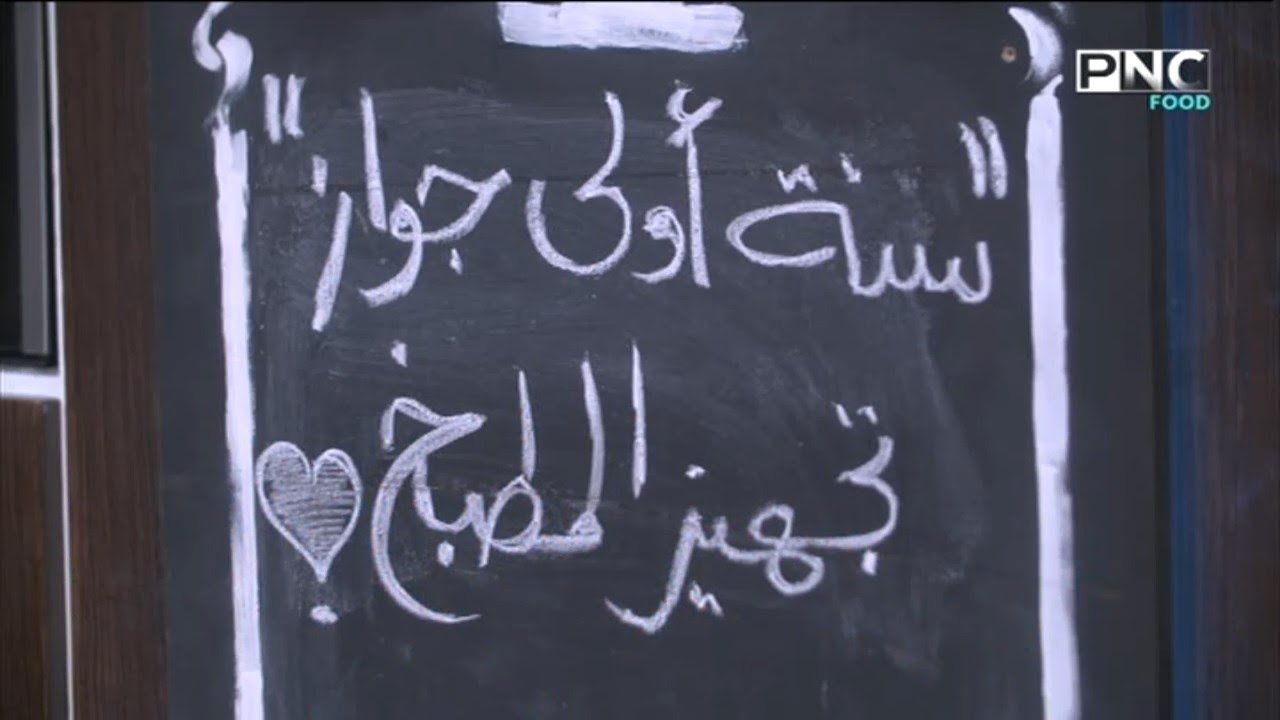 PNC
FOOD
"سنة أولى جواز"
تجهيز المطبخ